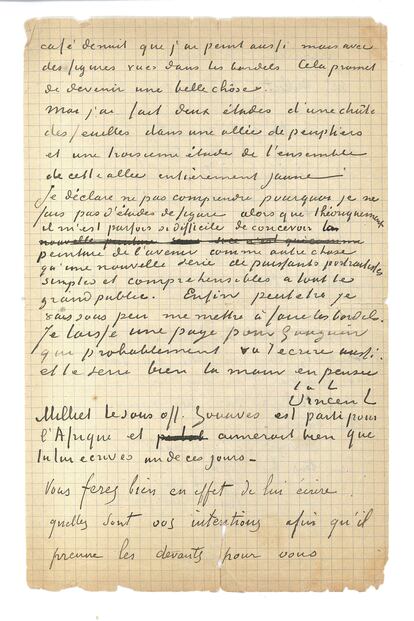 café de nuit que j'ai peint aussi mais avec
des figures vues dans les bordels Cela promet
de devenir une belle chose.
Moi j'ai fait deux études d'une chûte
des feuilles dans une allée de peupliers
et une troisième étude de l'ensemble
de cette allée entièrement jaune
Je déclare ne pas comprendre pourquoi je ne
fais pas d'études de figure alors que théoriquement
il m'est parfois si difficile de concevoir la
peinture de l'avenir comme autre chose
qu'une nouvelle série de puissants portraitistes
simples et compréhensibles à tout le
grand public. Enfin peut etre je
vais sous peu me mettre à faire les bordels.
Je laisse une page pour Gauguin
qui probablement va t'ecrire aussi.
et te serre bien la main en pensée
t. à t.
Vincent
Milliet le sous off. Zouaves est parti pour
l'Afrique et aimerait bien que
tu lui ecrives un de ces jours _
Vous ferez bien en effet de lui écrire
quelles sont vos intentions afin qu'il
prenne les devants pour vous